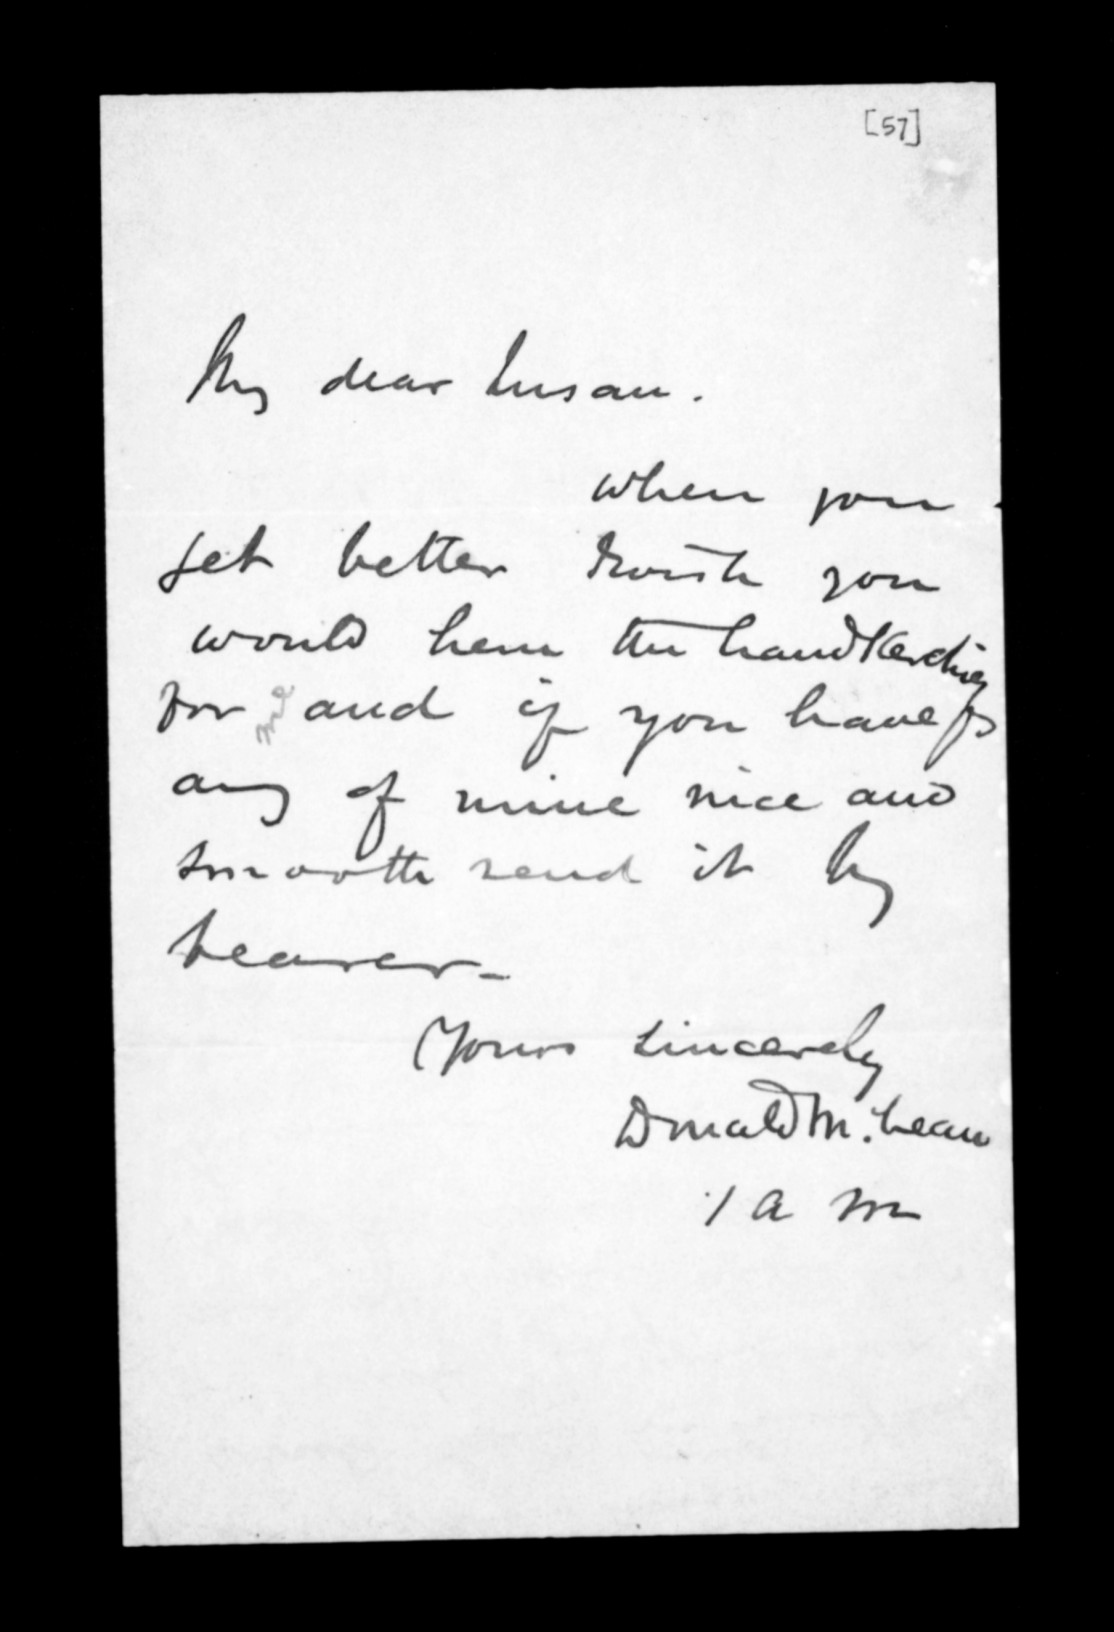 [57]
My dear Susan.
when you
get better I wish you
would hem the handkerchiefs
for me and if you have
any of mine nice and
smooth send it by
bearer_
Yours sincerely
Donald McLean
1 A M